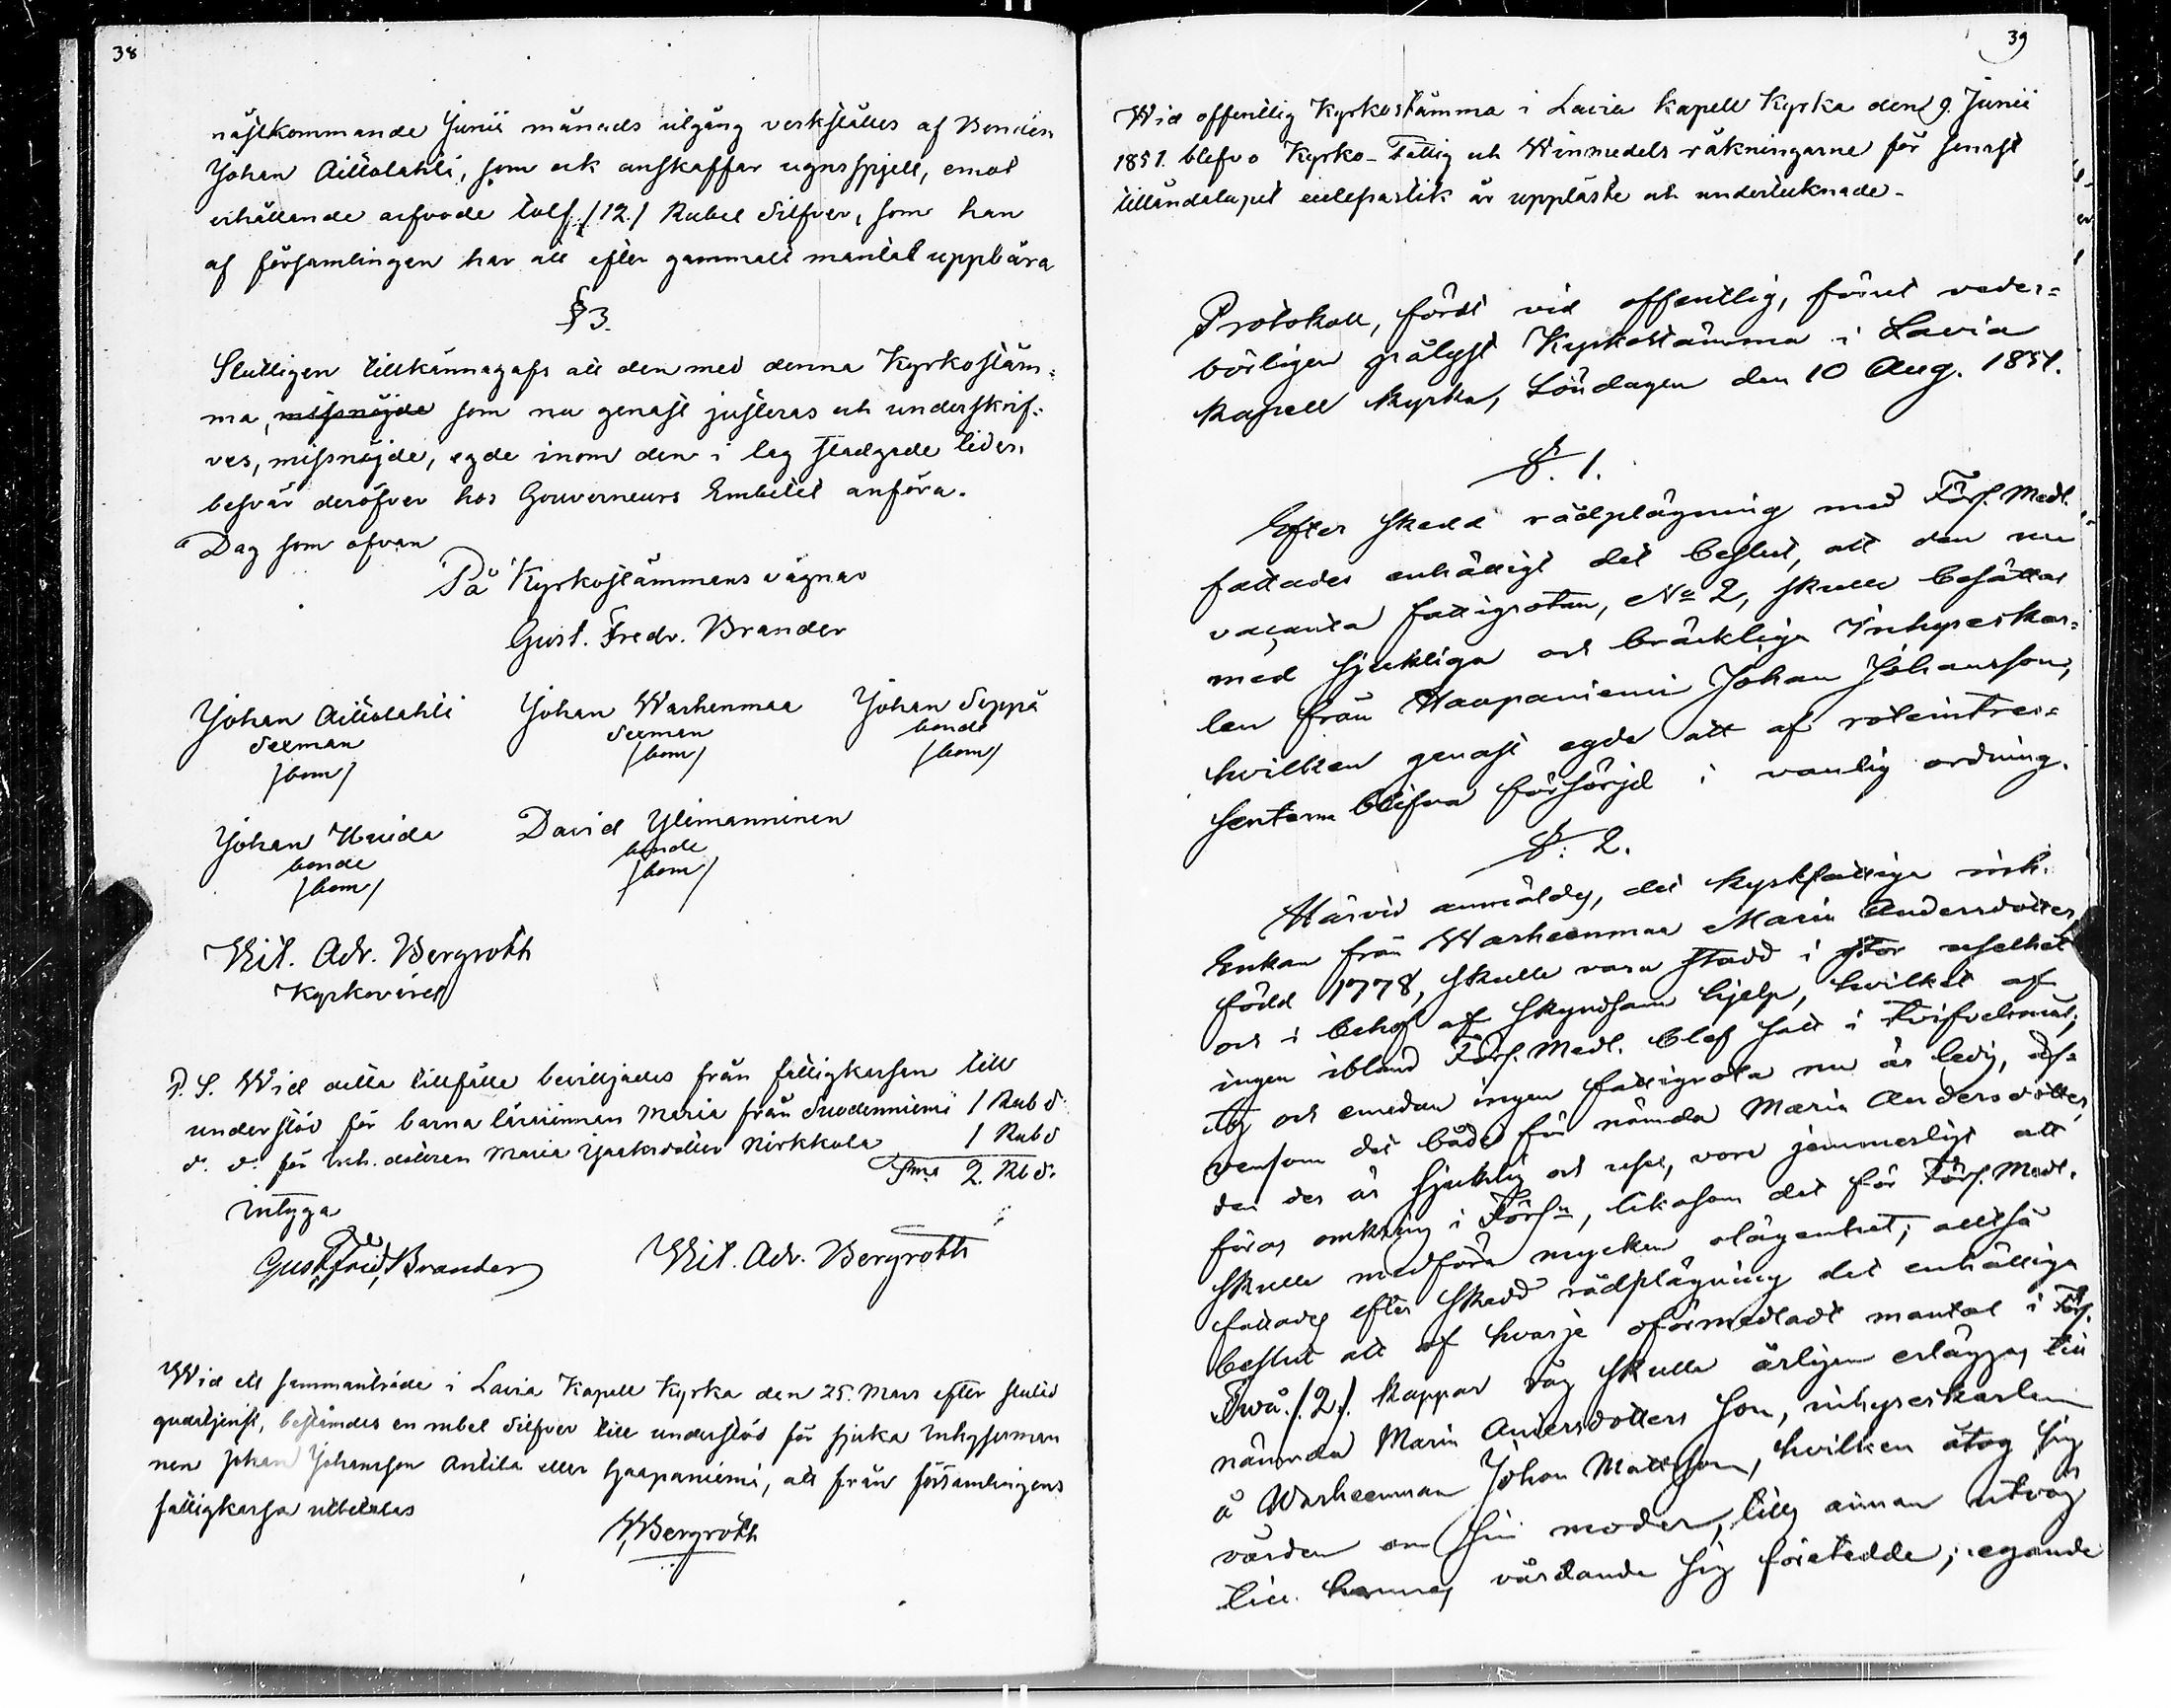 38
nästkommande Junii månads utgång verkställes af Bonden
Johan Aittolahti, som ock anskaffar ugnsspjell, emot
erhållande arfvode tolf /12/ Rubel Silfver, som han
af församlingen har att efter gammalt mantal uppbära
§ 3.
Slutligen tillkännagafs att den med denna Kyrkostäm-
ma, missnöjde som nu genast justeras och underskrif-
ves, missnöjde, egde inom den i lag stadgade tiden
besvär deröfver hos Gouverneurs Embetet anföra.
Dag som ofvan
På Kyrkostämmans vägnar
Gust. Fredr. Brander
Johan Aittolahti Johan Warhenmaa Johan Seppä
Sexman Sexman bonde
/bom/ /bom/ /bom/
Johan Uuida David Ylimanninen
bonde bonde
/bom/ /bom/
Wil. Adr. Bergroth
Kyrkovärd
P.S. Wid detta tillfälle beviljades från fattigkassan till
understöd för barna lärarinnan Maria från Suodenniemi 1 Rub S.
d. d. för inh. dottren Maria Jaaksdotter Kirkkola 1 Rub S
Sma 2. Rb S.
Intyga
Gust. Fred. Brander Wil. Adr. Bergroth
Wid ett sammanträde i Lavia Kapell Kyrka den 25. Mars efter slutad
gudstjenst, bestämdes en rubel Silfver till understöd för sjuka Inhyseman
nen Johan Johansson Antila eller Haapaniemi, att från församlingens
fattigkassa utbetalas
W Bergroth
39
Wid offentlig Kyrkostämma i Lavia Kapell Kyrka den 9. Junii
1851. blefvo Kyrko- Fattig och Winmedels räkningarne för senast
tilländalupet eclesiastik år uppläste och undertecknade-
Protokoll, fördt vid offentlig, förut veder-
börligen pålyst Kyrkostämma i Lavia
Kapell Kyrka, Söndagen den 10 Aug. 1851.
§. 1.
Efter skedd rådplägning med Förs. Medl.
fattades enhälligt det beslut, att den nu
vacanta fattigrotan, No 2, skulle besättas
med sjukliga och bräckliga Inhyseskar-
len från Haapaniemi Johan Johansson,
hvilken genast egde att af roteintres-
senterne blifva försörjd i vanlig ordning.
§. 2.
Härvid anmäldes, det kyrkfattiga inh.
Enkan från Warheenmaa Maria Andersdotter,
född 1778, skulle vara stadd i stor uselhet
och i behof af skyndsam hjelp, hvilket af
ingen ibland Förs. Medl. blef satt i tvifvelsmål;
och emedan ingen fattigrota nu är ledig, äf-
vensom det både för nämda Maria Andersdotter,
der är sjuklig och usel, vore jemmerligt att
föras omkring i Förs:n, likasom det för Förs. Medl.
skulle medföra mycken olägenhet; alltså
fattades efter skedd rådplägning det enhälliga
beslut att af hvarje oförmedladt mantal i Förs.
Två /.2/. kappar råg skulle årligen erläggas till
nämnda Maria Andersdotters son, inhyseskarlen
å Warheenmaa Johan Mattsson, hvilken åtog sig
vården om sin moder, tills annan utväg
till hennes vårdande sig företedde; egande